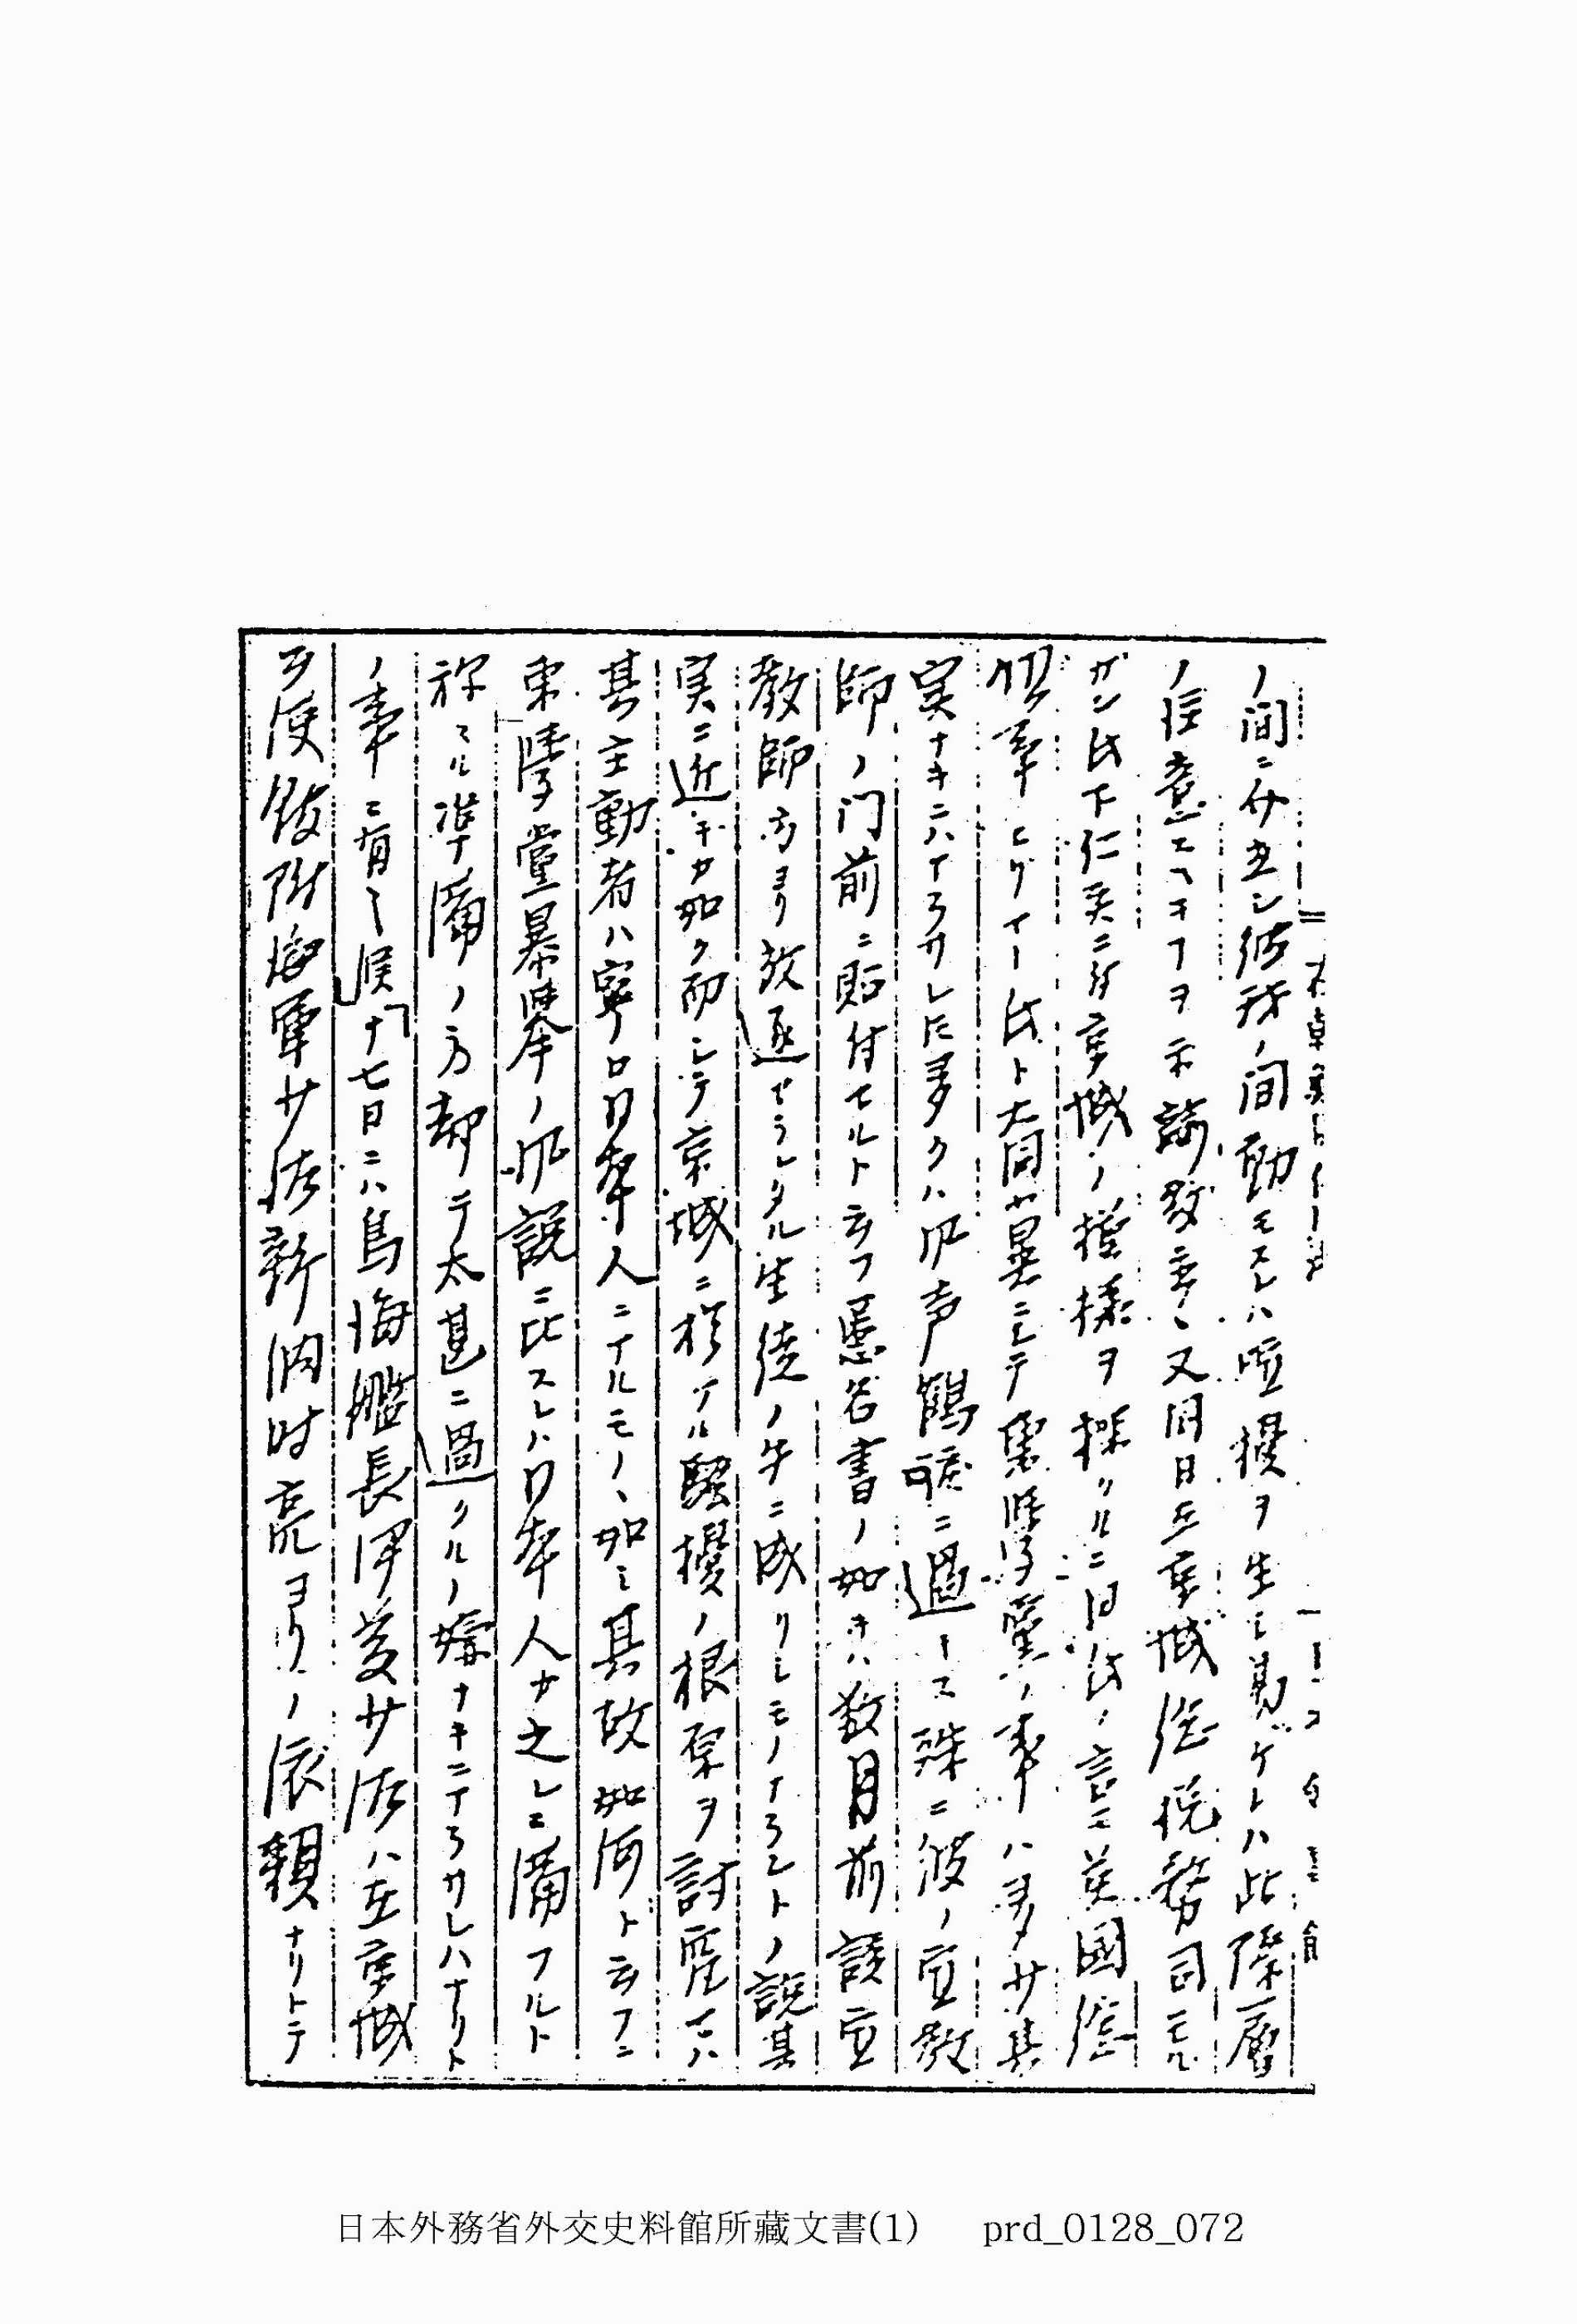 ノ間ニ介立シ彼我ノ間動モスレハ喧擾ヲ生シ易ケレハ此際一層
ノ注意ヱヘキヿヲ示諭致置候又同日在京城総税務司モル
ガン氏下仁矣ニ付京城ノ模様ヲ探リルニ同氏ノ言ニ英國総
領事ヒリイー氏ト大同小異ニシテ東學黨ノ事ハ多少其
実ナキニハアラサレ𪜈多クハ风声鶴唳ニ過キス殊ニ彼ノ宣教
師ノ门前ニ貼付セルト云フ匿名書ノ如キハ数月前該宣
教師方ヨリ放逐セラレタル生徒ノ手ニ成リシモノナラントノ説其
実ニ近キカ如ク而シテ京城ニ於イル騒擾ノ根原ヲ討究セハ
其主動者ハ寧ロ日本人ニアルモノヽ如シ其故如何ドナラフニ
東學黨暴挙ノ风説ニ比スレハ日本人カ之レニ備フルト
称スル準備ノ方却テ太甚ニ過クルノ嫌ナキニアラサレハナリト
ノ事ニ有之候十七日ニハ鳥海艦長伊 サ佐ハ在京城
公使館附海軍少佐新納時亮ヨリノ依頼ナリトテ
日本外務省外交史料館所藏文書(1) prd_0128_072